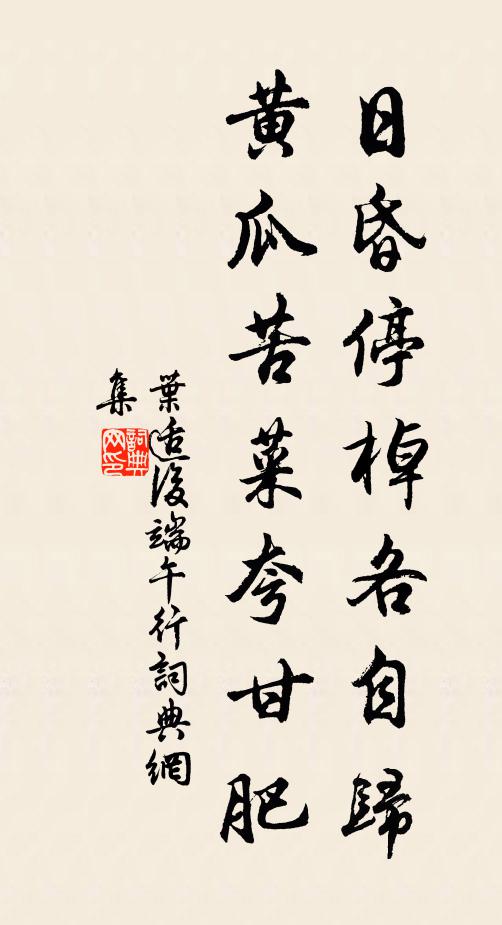 日昏停棹各自歸
黄瓜苦菜夸甘肥
葉适後端午行詞典網
集
詞典
网印